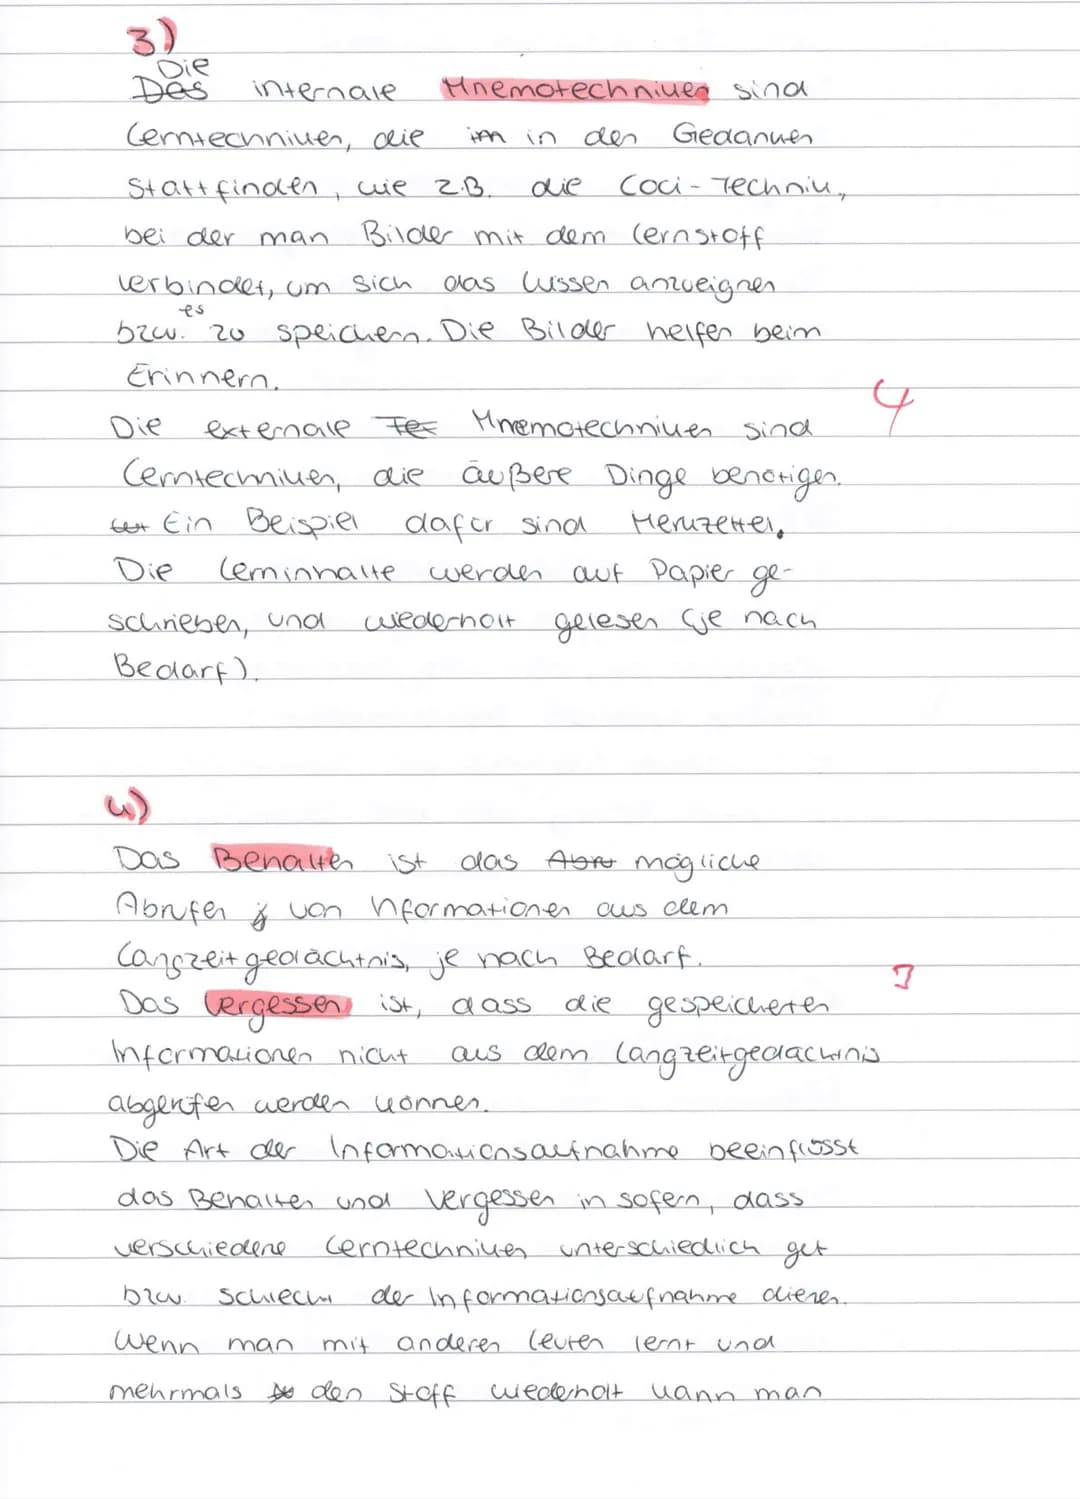 3)
Die
Das internale Mnemotechniken sind
Lerntechniken, die im in den Gedanken
stattfinden, wie z.B. die Loci-Technik,
bei der man Bilder mit dem Lernstoff
verbindet, um sich das Wissen anzueignen
es
bzw. zu speichern. Die Bilder helfen beim
Erinnern.
4
Die externale Tec Mnemotechniken sind
Lerntechniken, die äußere Dinge benötigen.
Ein Beispiel dafür sind Merkzettel.
Die Lerninhalte werden auf Papier ge-
schrieben, und wiederholt gelesen (je nach
Bedarf).
4)
Das Behalten ist das Abru mögliche
Abrufen von Informationen aus dem
Langzeitgedächtnis, je nach Bedarf.
Das Vergessen ist, dass die gespeicherten
Informationen nicht aus dem Langzeitgedächtnis
abgerufen werden können.
Die Art der Informationsaufnahme beeinflusst
das Behalten und Vergessen in sofern, dass
verschiedene Lerntechniken unterschiedlich gut
bzw. schlecht der Informationsaufnahme dienen.
Wenn man mit anderen Leuten lernt und
mehrmals den Stoff wiederholt kann man